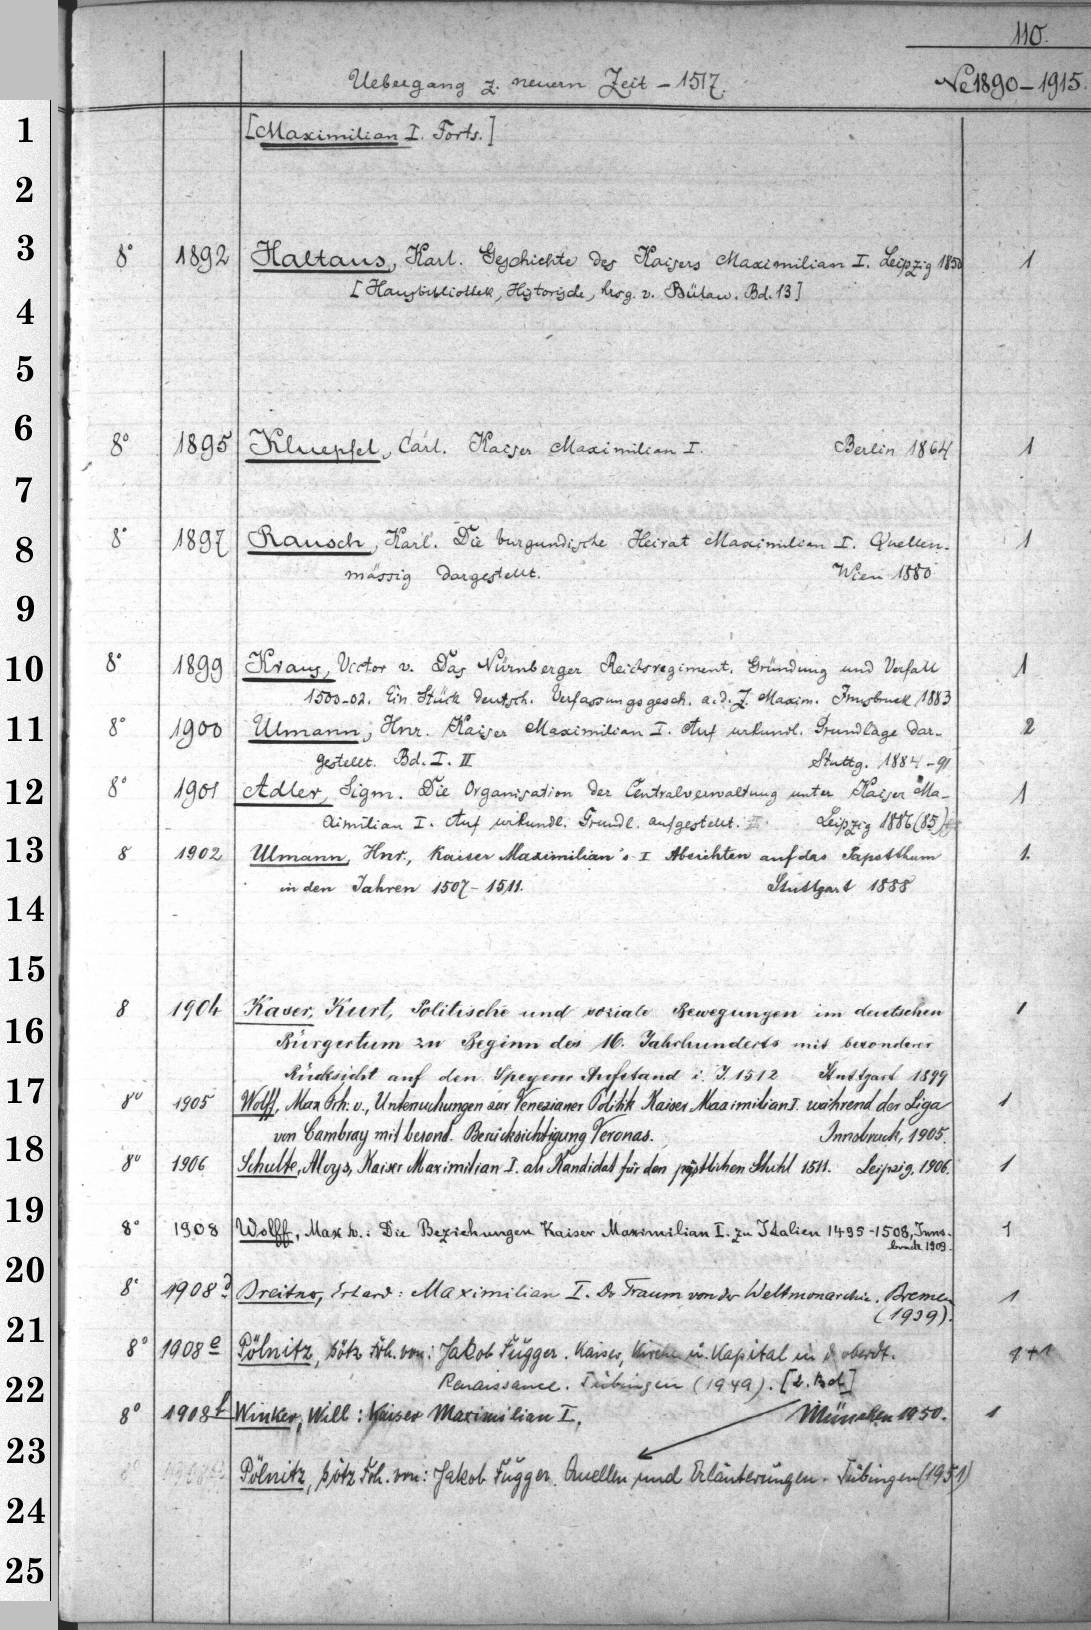 110.
Uebergang z. neuern Zeit – 1517. Nc 1890–1915.
1 [Maximilian I. Forts.]
2
3 8° 1892 Haltaus, Karl. Geschichte des Kaisers Maximilian I. Leipzig 1850 1
4 [Hausbibliothek, Historische, hrsg. v. Bülau. Bd. 13]
5
6 8° 1895 Kluepfel, Carl. Kaiser Maximilian I. Berlin 1864 1
7
8 8° 1897 Rausch, Karl. Die burgundische Heirat Maximilian I. Quellen-
mässig dargestellt. Wien 1880 1
9
10 8° 1899 Kraus, Victor v. Das Nürnberger Reichsregiment. Gründung und Verfall 1
1500–02. Ein Stück deutsch. Verfassungsgesch. a. d. Z. Maxim. Innsbruck 1883
11 8° 1900 Ulmann, Hnr. Kaiser Maximilian I. Auf urkundl. Grundlage dar- 2
gestellt. Bd. I. II Stuttg. 1884–91
12 8° 1901 Adler, Sigm. Die Organisation der Centralverwaltung unter Kaiser Ma- 1
ximilian I. Auf urkundl. Grundl. aufgestellt. Leipzig 1886(85)
13 8 1902 Ulmann, Hnr., Kaiser Maximilian's I Absichten auf das Papstthum 1.
in den Jahren 1507–1511. Stuttgart 1888
14
15
8 1904 Kaser, Kurt, Politische und soziale Bewegungen im deutschen 1
16 Bürgertum zu Beginn des 16. Jahrhunderts mit besonderer
Rücksicht auf den Speyerer Aufstand i. J. 1512 Stuttgart 1899
17 8° 1905 Wolff, Max Frh. v., Untersuchungen zur Venezianer Politik Kaiser Maximilian I. während der Liga 1
von Cambray mit besond. Berücksichtigung Veronas. Innsbruck, 1905.
18 8° 1906 Schulte, Aloys, Kaiser Maximilian I. als Kandidat für den päpstlichen Stuhl 1511. Leipzig, 1906. 1
19 8° 1908 Wolff, Max v.: Die Beziehungen Kaiser Maximilian I. zu Italien 1495–1508, Inns- 1
bruck 1909.
20 8° 1908d Breitner, Erhard: Maximilian I. Der Traum von der Weltmonarchie. Bremen 1
(1939).
21 8° 1908e Pölnitz, Götz Frh. von: Jakob Fugger. Kaiser, Kirche u. Kapital in d oberdt. 1+1
22 Renaissance. Tübingen (1949). [2. Bd]
8° 1908f Winker, Will: Kaiser Maximilian I. München 1950. 1
23 8° 1908e Pölnitz, Götz Frh. von: Jakob Fugger. Quellen und Erläuterungen. Tübingen (1951)
24
25